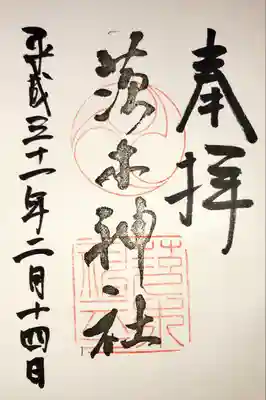 奉拝
茨木神社
平成三十一年二月十四日